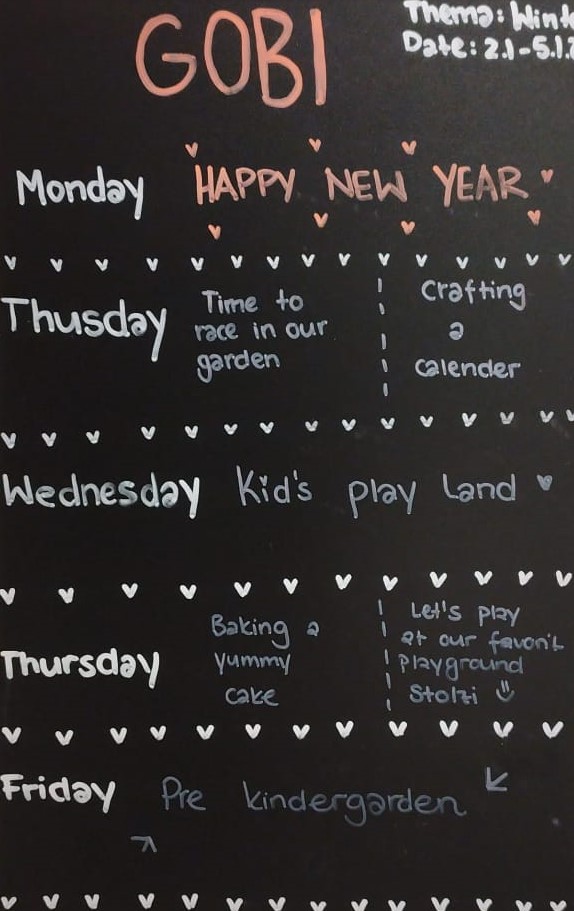 GOBI
Thema: Winte
Date: 2.1-5.1.2
Monday HAPPY NEW YEAR
Thusday
Time to
race in our
garden
Crafting
a
calender
Wednesday Kid's play Land
Thursday
Baking a
yummy
cake
Let's play
at our favorit
playground
Stolzi
Friday Pre kindergarden